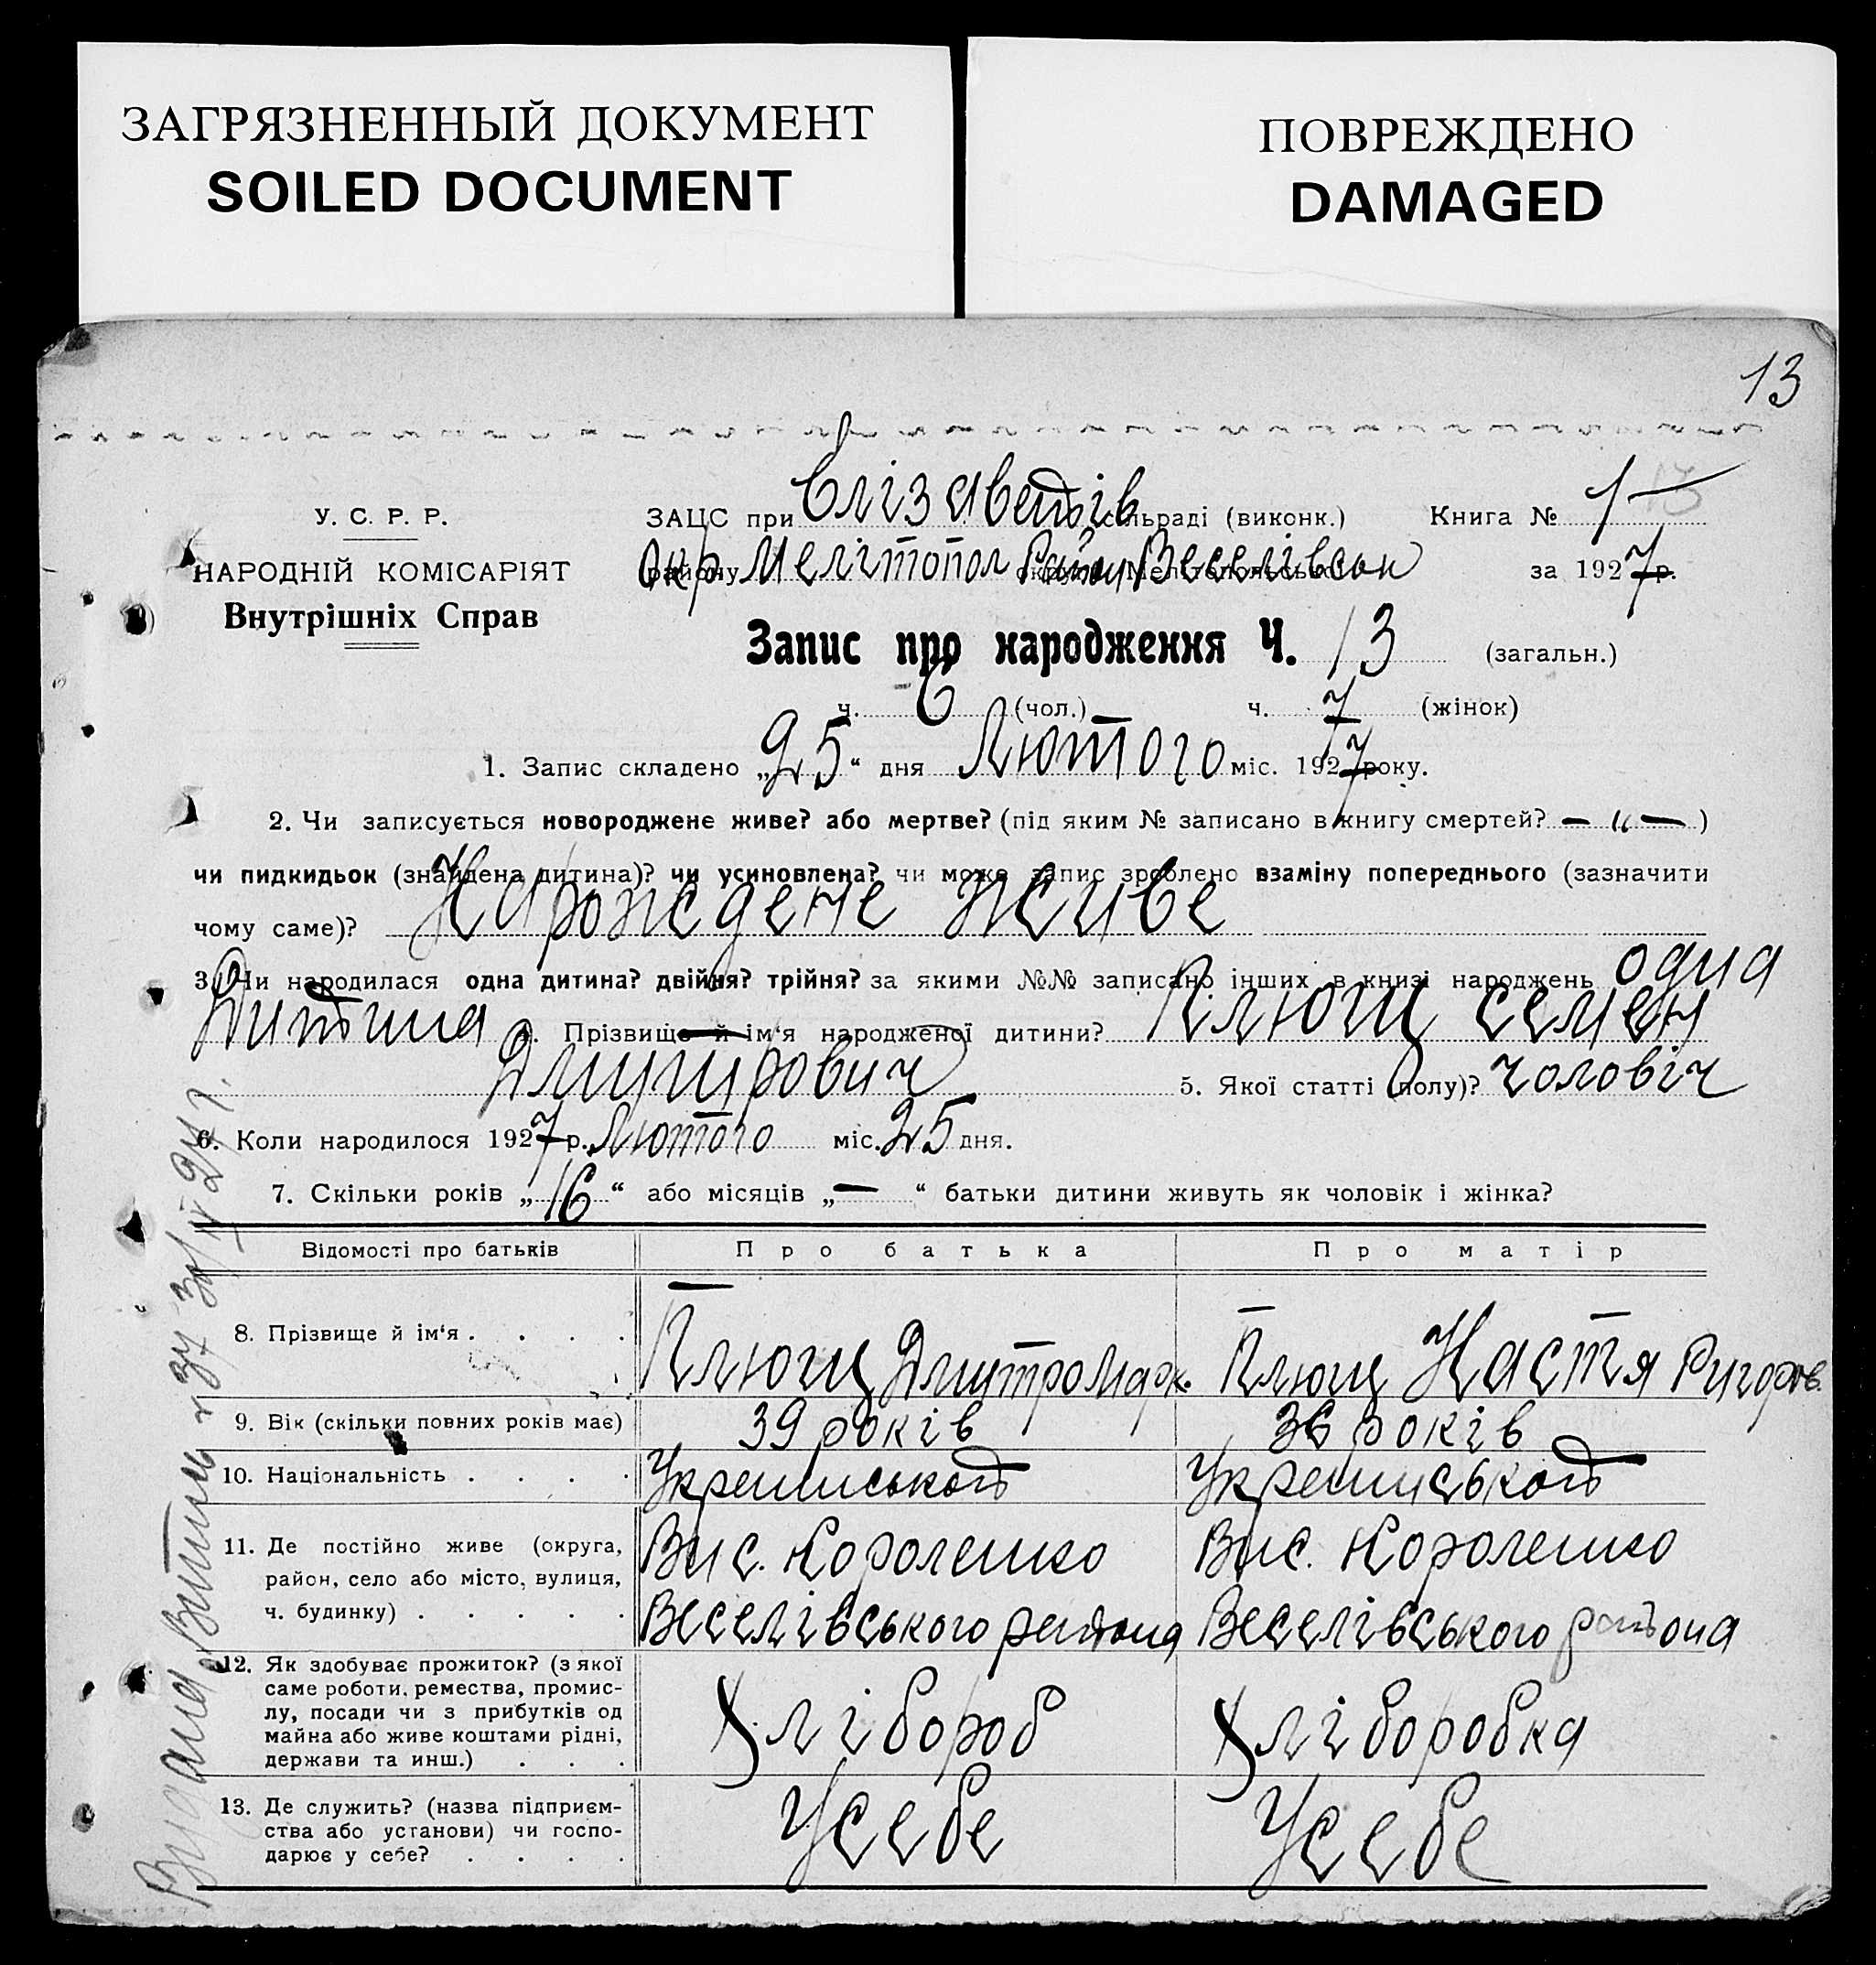 ЗАГРЯЗНЕННЫЙ ДОКУМЕНТ
SOILED DOCUMENT
ПОВРЕЖДЕНО
DAMAGED
13
У. С. Р. Р.
НАРОДНІЙ КОМІСАРІЯТ
Внутрішніх Справ
ЗАЦС при Єлізаветів сільраді (виконк.) Книга № 1
району Окр Мелітопол округи Район Веселівськ за 1927 р.
Запис про народження Ч. 13 (загальн.)
ч. 6 (чол.) ч. 7 (жінок)
1. Запис складено „25“ дня Лютого міс. 1927 року.
2. Чи записується новороджене живе? або мертве? (під яким № записано в книгу смертей? — „ — )
чи пидкидьок (знайдена дитина)? чи усиновлена? чи може запис зроблено взаміну попереднього (зазначити
чому саме)? Нарождене живе
3. Чи народилася одна дитина? двійня? трійня? за якими №№ записано інших в книзі народжень одна
Дитина 4. Прізвище й ім‘я народженої дитини? Плющ Семен
Дмитрович 5. Якої статті (полу)? чоловіч
6. Коли народилося 1927 р. Лютого міс. 25 дня.
7. Скільки років „16“ або місяців „—“ батьки дитини живуть як чоловік і жінка?
Відомості про батьків Про батька Про матір
8. Прізвище й ім‘я . . . . Плющ Дмитро Марк. Плющ Настя Ригоров.
9. Вік (скільки повних років має) 39 років 36 років
10. Національність . . . .
11. Де постійно живе (округа, Вис. Короленко Вис. Короленко
район, село або місто, вулиця,
ч. будинку) . . . . . Веселівського района Веселівського района
12. Як здобуває прожиток? (з якої
саме роботи, ремества, промис-
лу, посади чи з прибутків од Хлібороб Хліборобка
майна або живе коштами рідні,
держави та инш.) . . .
13. Де служить? (назва підприєм-
ства або установи) чи госпо- Усебе Усебе
дарює у себе? . . . .